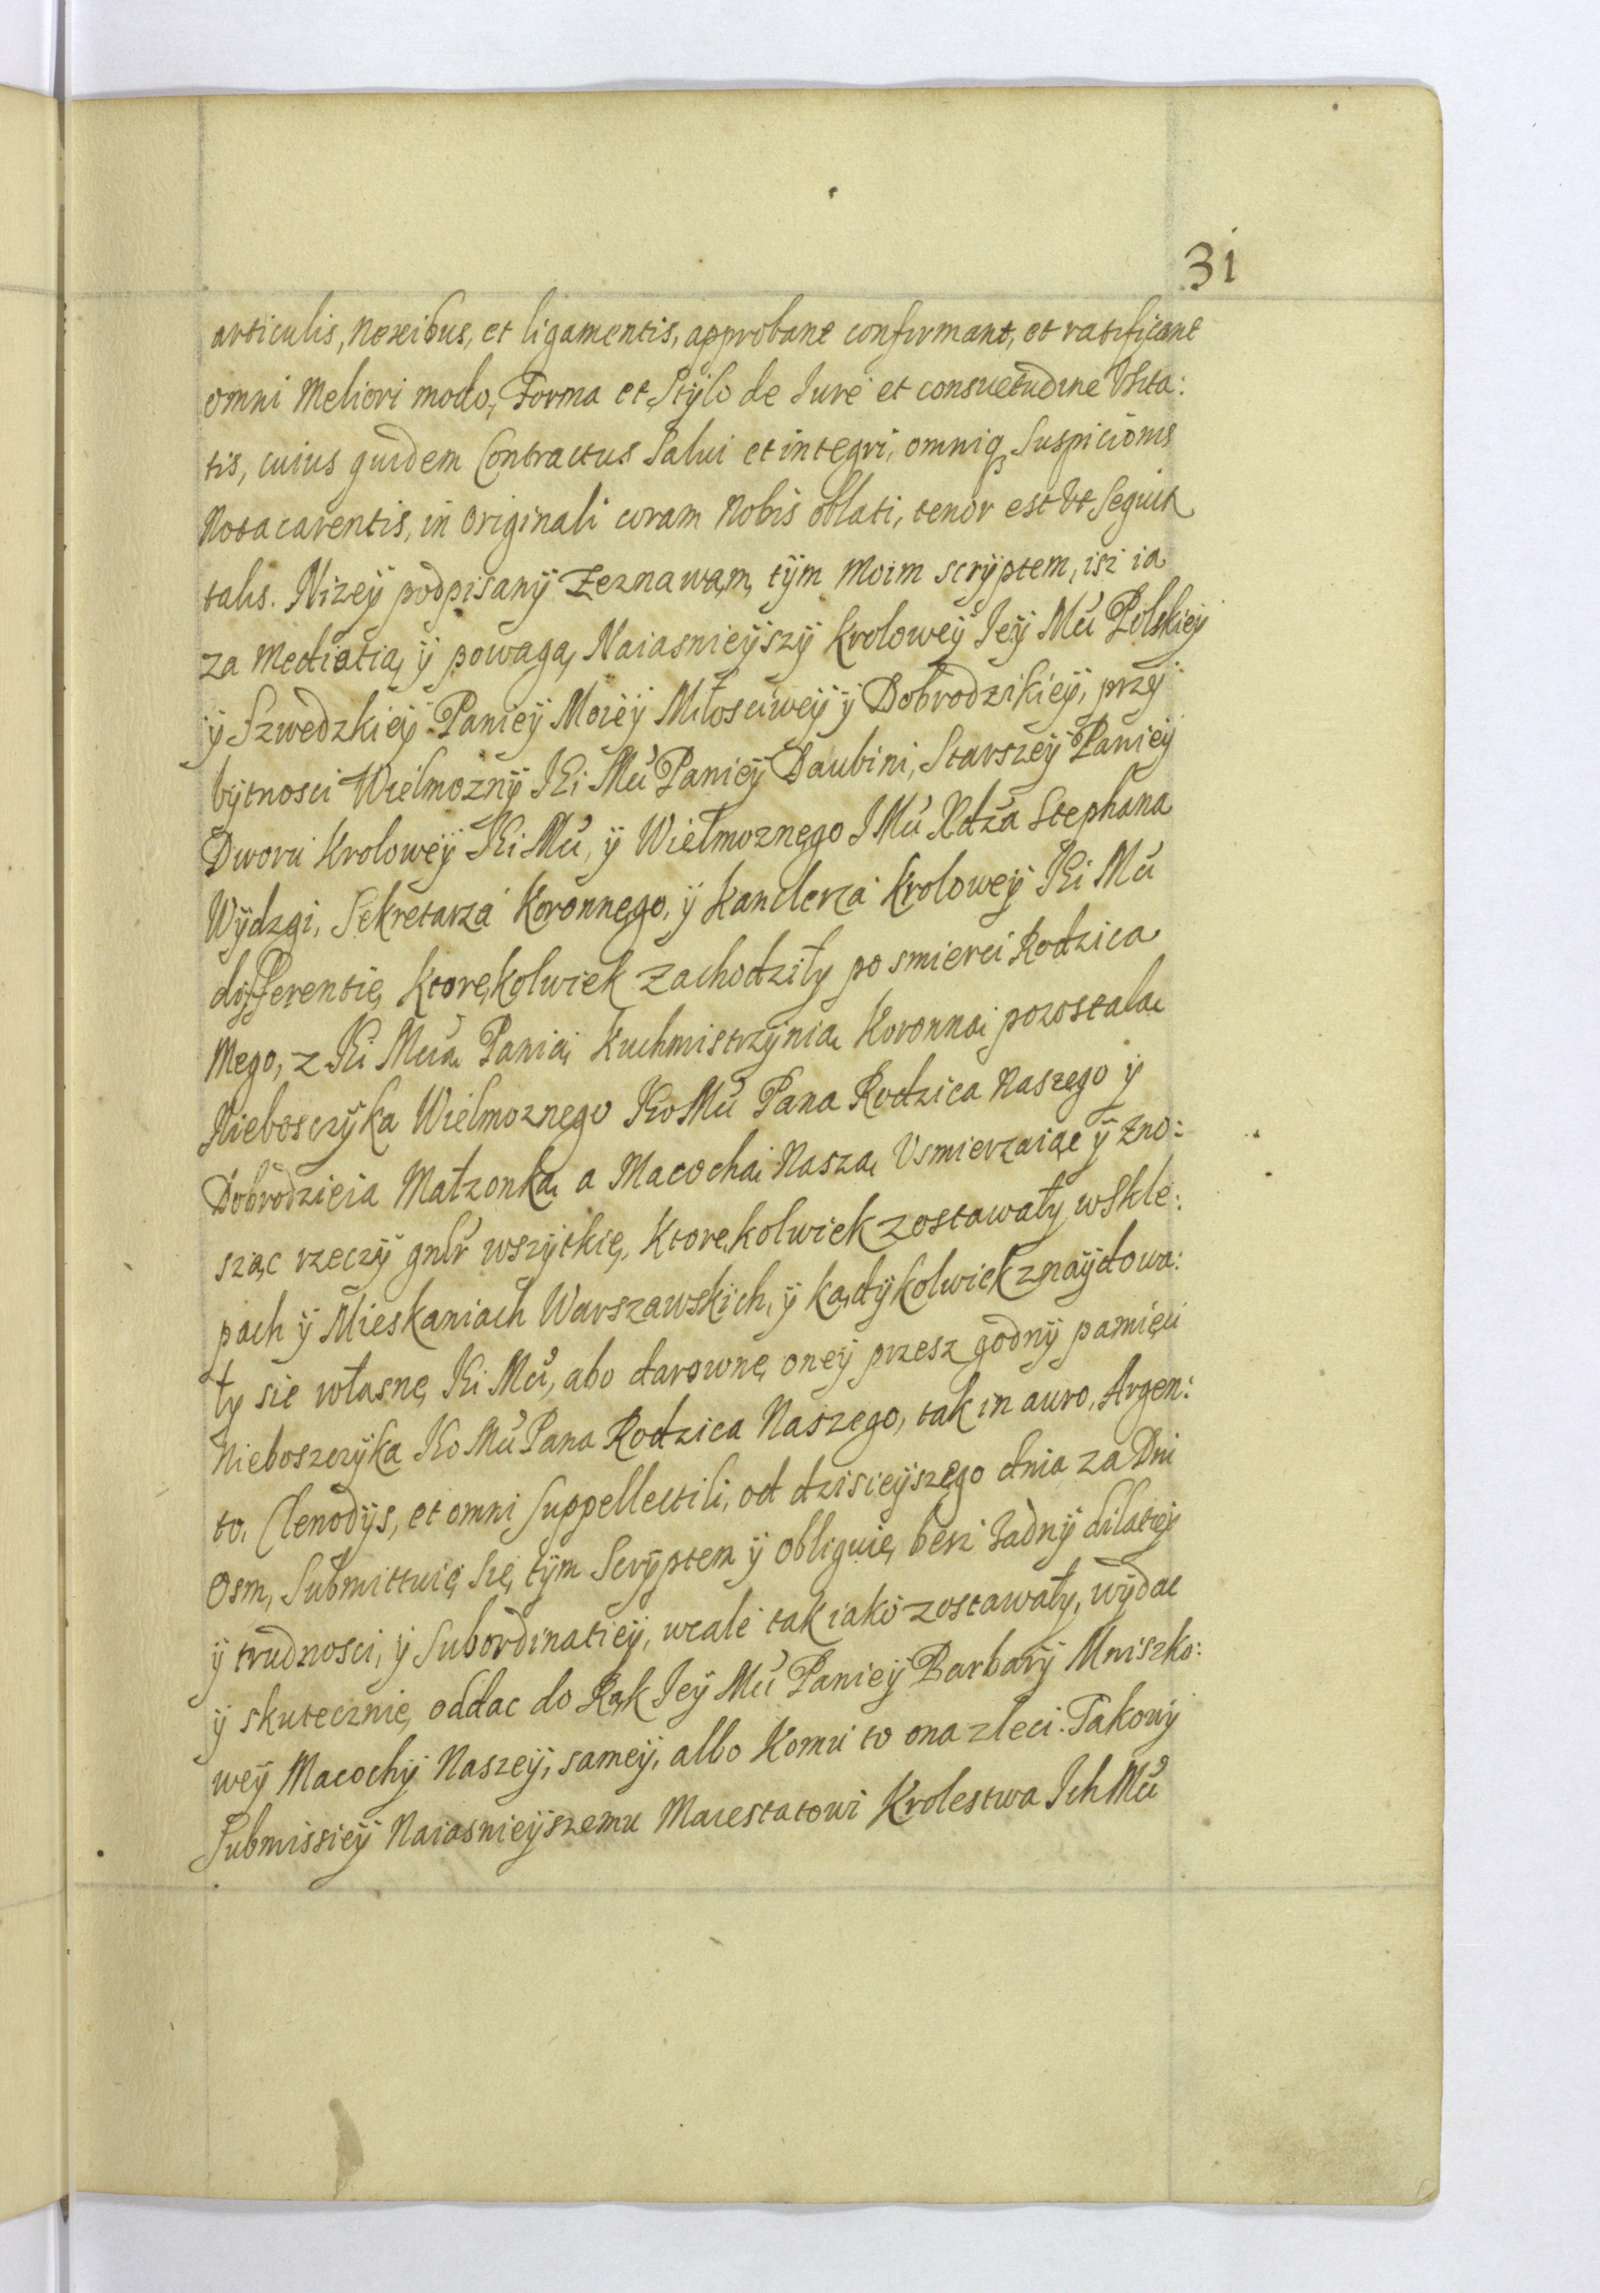 31
articulis, Nexibus, et ligamentis, approbant confirmant, et ratificant
omni Meliori modo, Forma et Stÿlo de Iure et consuetudine Usita:
tis, cuius quidem Contractus Salui et integri, omniq Suspicionis
Nota carentis, in originali coram Nobis oblati, tenor est Ut Sequit
talis. Nizeÿ podpisanÿ Zeznawąm, tÿm Moim scrÿptem, isz ia
za Mediatią ÿ powagą Naiasnieÿszÿ Kroloweÿ Ieÿ Mci Polskieÿ
ÿ Szwedzkieÿ Panieÿ Moieÿ Miłosciweÿ ÿ Dobrodzikieÿ, przÿ
bÿtnosci Wielmoznÿ IEi Mci Panieÿ Daubini, Starszeÿ Panieÿ
Dworu Kroloweÿ IEi Mci, ÿ Wielmoznego IMci Xdza Stephana
Wÿdzgi, Sekretarza Koronnego, ÿ Kanclerza Kroloweÿ IEi Mci
differentię ktorękolwiek zachodziły po smierci Rodzica
Mego, z IEi Mcią Panią Kuchmistrzÿnią Koronną pozostałą
Niebosczÿka Wielmoznego IEo Mci Pana Rodzica Naszego ÿ
Dobrodzieia Małzonką a Macochą Naszą Vsmierzaiąc ÿ zno:
sząc rzeczÿ gnlr wszÿtkię, ktorękolwiek zostawały w Skle:
pach ÿ Mieskaniach Warszawskich, ÿ kądÿkolwiek znaÿdowa:
ły sie własnę IEi Mci, abo darownę oneÿ przesz godnÿ pamięci
Nieboszczÿka IEo Mci Pana Rodzica Naszego, tak in auro, Argen:
to, Clenodÿs, et omni Suppellectili, od dzisieÿszego dnia za Dni
Osm, Submittuię się tÿm Scrÿptem ÿ obliguię besz żadnÿ dilatieÿ
ÿ trudnosci, ÿ Subordinatieÿ, wcale tak iako zostawały, wÿdac
ÿ skutecznię oddac do Rąk Ieÿ Mci Panieÿ Barbarÿ Mniszko:
weÿ Macochÿ Naszeÿ, sameÿ, albo Komu to ona zleci. Takowÿ
Submissieÿ Naiasnieÿszemu Maiestatowi Krolestwa Ich Mci